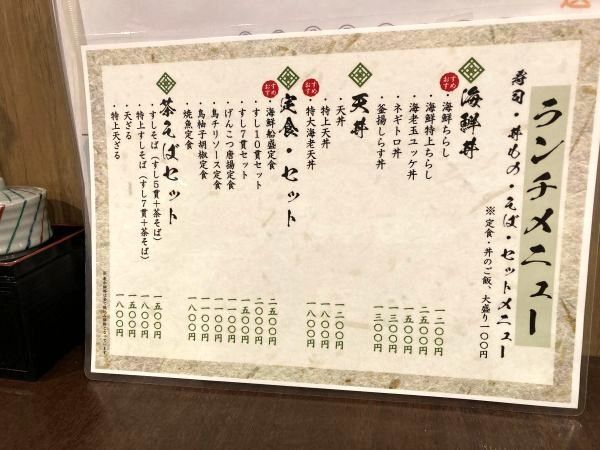 ランチメニュー
寿司・丼もの・そば・セットメニュー
※定食・丼のご飯、大盛り一〇〇円
海鮮丼
おすすめ
・海鮮ちらし 一二〇〇円
・海鮮特上ちらし 二五〇〇円
・海老玉ユッケ丼 一五〇〇円
・ネギトロ丼 一三〇〇円
・釜揚げしらす丼 一三〇〇円
天丼
・天丼 一二〇〇円
・特上天丼 一八〇〇円
おすすめ
・特大海老天丼 一八〇〇円
定食・セット
おすすめ
・海鮮船盛定食 二五〇〇円
・すし10貫セット 二〇〇〇円
・すし7貫セット 一五〇〇円
・げんこつ唐揚定食 一一〇〇円
・鳥チリソース定食 一一〇〇円
・鳥柚子胡椒定食 一一〇〇円
・焼魚定食 一一〇〇円
茶そばセット
・すしそば（すし5貫+茶そば） 一五〇〇円
・特上すしそば（すし7貫+茶そば） 一八〇〇円
・天ざる 一五〇〇円
・特上天ざる 一八〇〇円